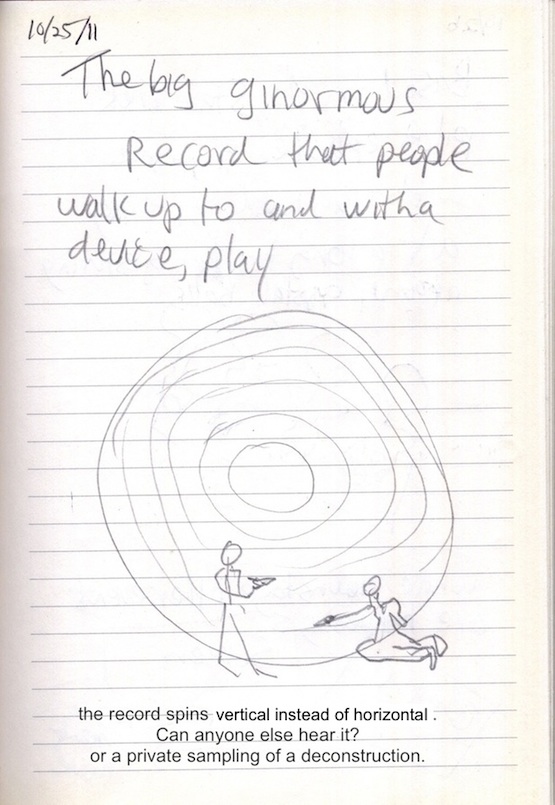 10/25/11
The big ginormous
Record that people
walk up to and with a
device, play
the record spins vertical instead of horizontal .
Can anyone else hear it?
or a private sampling of a deconstruction.